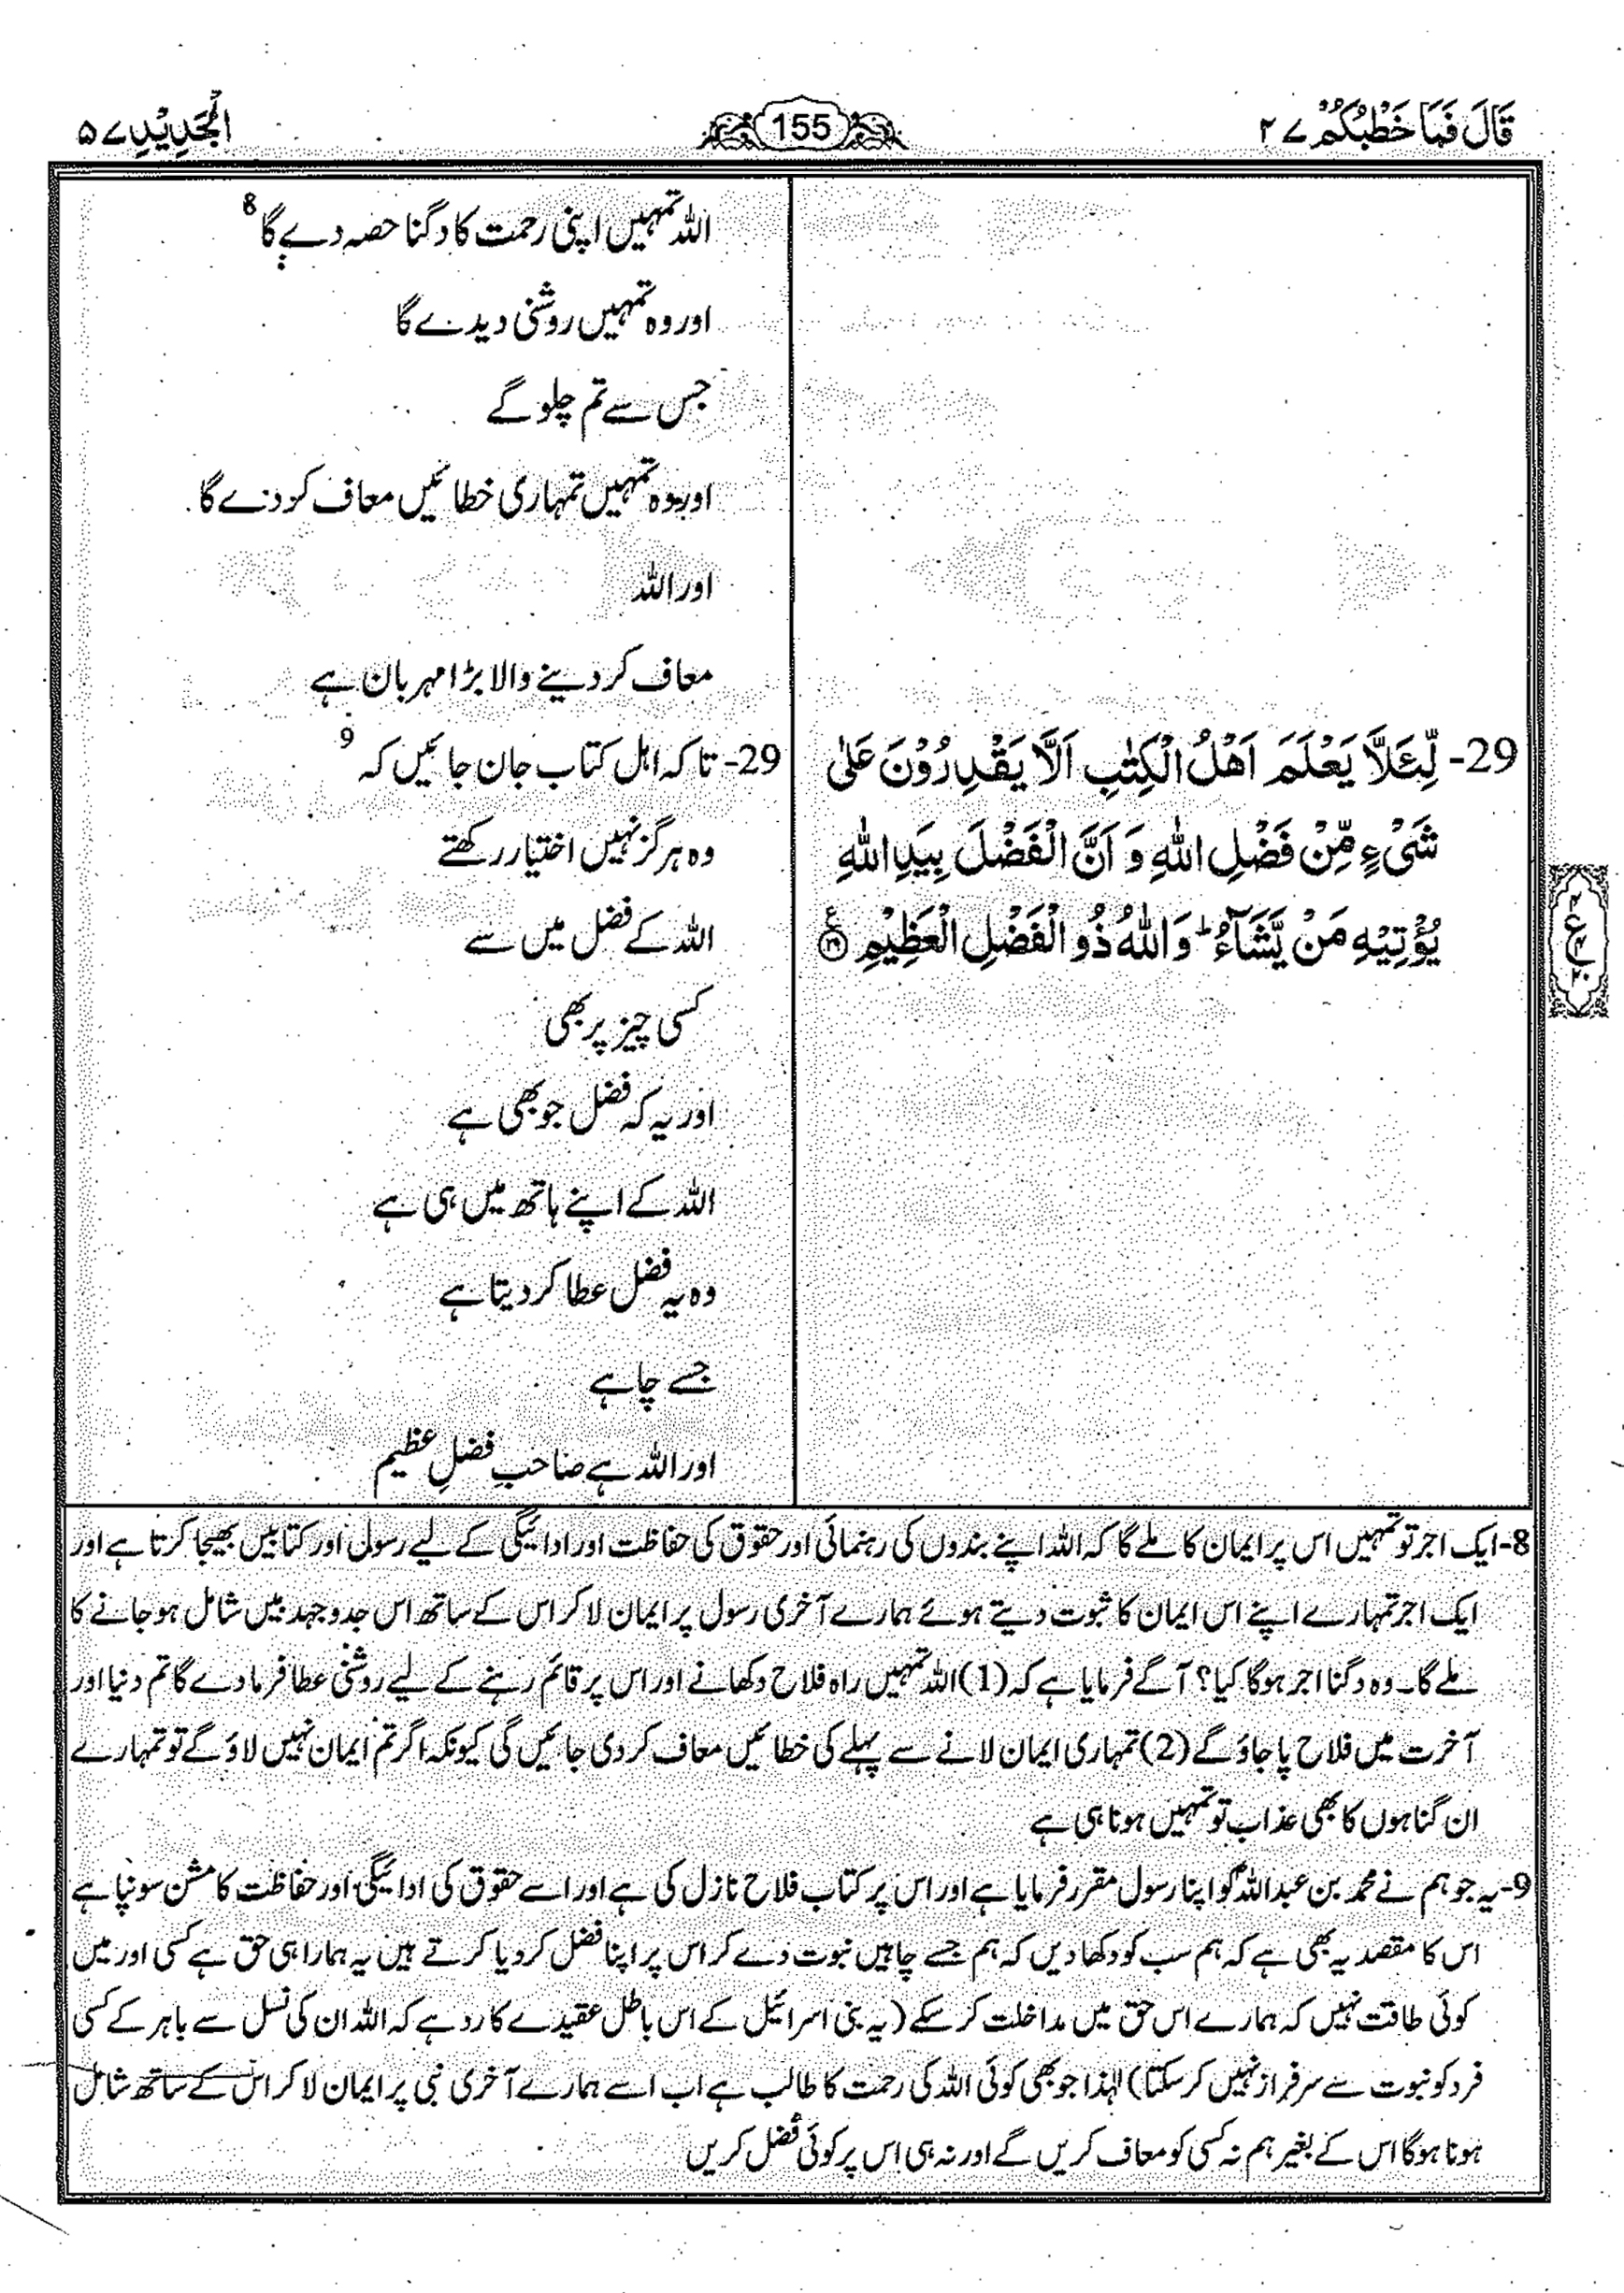 قَالَ فَمَا خَطْبُكُمْ ۲۷
155
الْحَدِيْدِ ۵۷
اللہ تمہیں اپنی رحمت کا دگنا حصہ دے گا 8
اور وہ تمہیں روشنی دیدے گا
جس سے تم چلو گے
اور وہ تمہیں تمہاری خطائیں معاف کر دے گا
اور اللہ
معاف کر دینے والا بڑا مہربان ہے
29- لِّئَلَّا يَعْلَمَ اَهْلُ الْكِتٰبِ اَلَّا يَقْدِرُوْنَ عَلٰى
شَىْءٍ مِّنْ فَضْلِ اللّٰهِ وَ اَنَّ الْفَضْلَ بِيَدِ اللّٰهِ
يُؤْتِيْهِ مَنْ يَّشَآءُ ؕ وَاللّٰهُ ذُو الْفَضْلِ الْعَظِيْمِ ۲۹ ع
29- تاکہ اہل کتاب جان جائیں کہ 9
وہ ہرگز نہیں اختیار رکھتے
اللہ کے فضل میں سے
کسی چیز پر بھی
اور یہ کہ فضل جو بھی ہے
اللہ کے اپنے ہاتھ میں ہی ہے
وہ یہ فضل عطا کر دیتا ہے
جسے چاہے
اور اللہ ہے صاحبِ فضلِ عظیم
8- ایک اجر تو تمہیں اس پر ایمان کا ملے گا کہ اللہ اپنے بندوں کی رہنمائی اور حقوق کی حفاظت اور ادائیگی کے لیے رسول اور کتابیں بھیجا کرتا ہے اور
ایک اجر تمہارے اپنے اس ایمان کا ثبوت دیتے ہوئے ہمارے آخری رسول پر ایمان لا کر اس کے ساتھ اس جدوجہد میں شامل ہو جانے کا
ملے گا۔ وہ دگنا اجر ہوگا کیا؟ آگے فرمایا ہے کہ (1) اللہ تمہیں راہ فلاح دکھانے اور اس پر قائم رہنے کے لیے روشنی عطا فرما دے گا تم دنیا اور
آخرت میں فلاح پا جاؤ گے (2) تمہاری ایمان لانے سے پہلے کی خطائیں معاف کر دی جائیں گی کیونکہ اگر تم ایمان نہیں لاؤ گے تو تمہارے
ان گناہوں کا بھی عذاب تو تمہیں ہونا ہی ہے
9- یہ جو ہم نے محمد بن عبداللہ کو اپنا رسول مقرر فرمایا ہے اور اس پر کتاب فلاح نازل کی ہے اور اسے حقوق کی ادائیگی اور حفاظت کا مشن سونپا ہے
اس کا مقصد یہ بھی ہے کہ ہم سب کو دکھا دیں کہ ہم جسے چاہیں نبوت دے کر اس پر اپنا فضل کر دیا کرتے ہیں یہ ہمارا ہی حق ہے کسی اور میں
کوئی طاقت نہیں کہ ہمارے اس حق میں مداخلت کر سکے (یہ بنی اسرائیل کے اس باطل عقیدے کا رد ہے کہ اللہ ان کی نسل سے باہر کے کسی
فرد کو نبوت سے سرفراز نہیں کر سکتا) لہٰذا جو بھی کوئی اللہ کی رحمت کا طالب ہے اب اسے ہمارے آخری نبی پر ایمان لا کر اس کے ساتھ شامل
ہونا ہوگا اس کے بغیر ہم نہ کسی کو معاف کریں گے اور نہ ہی اس پر کوئی فضل کریں